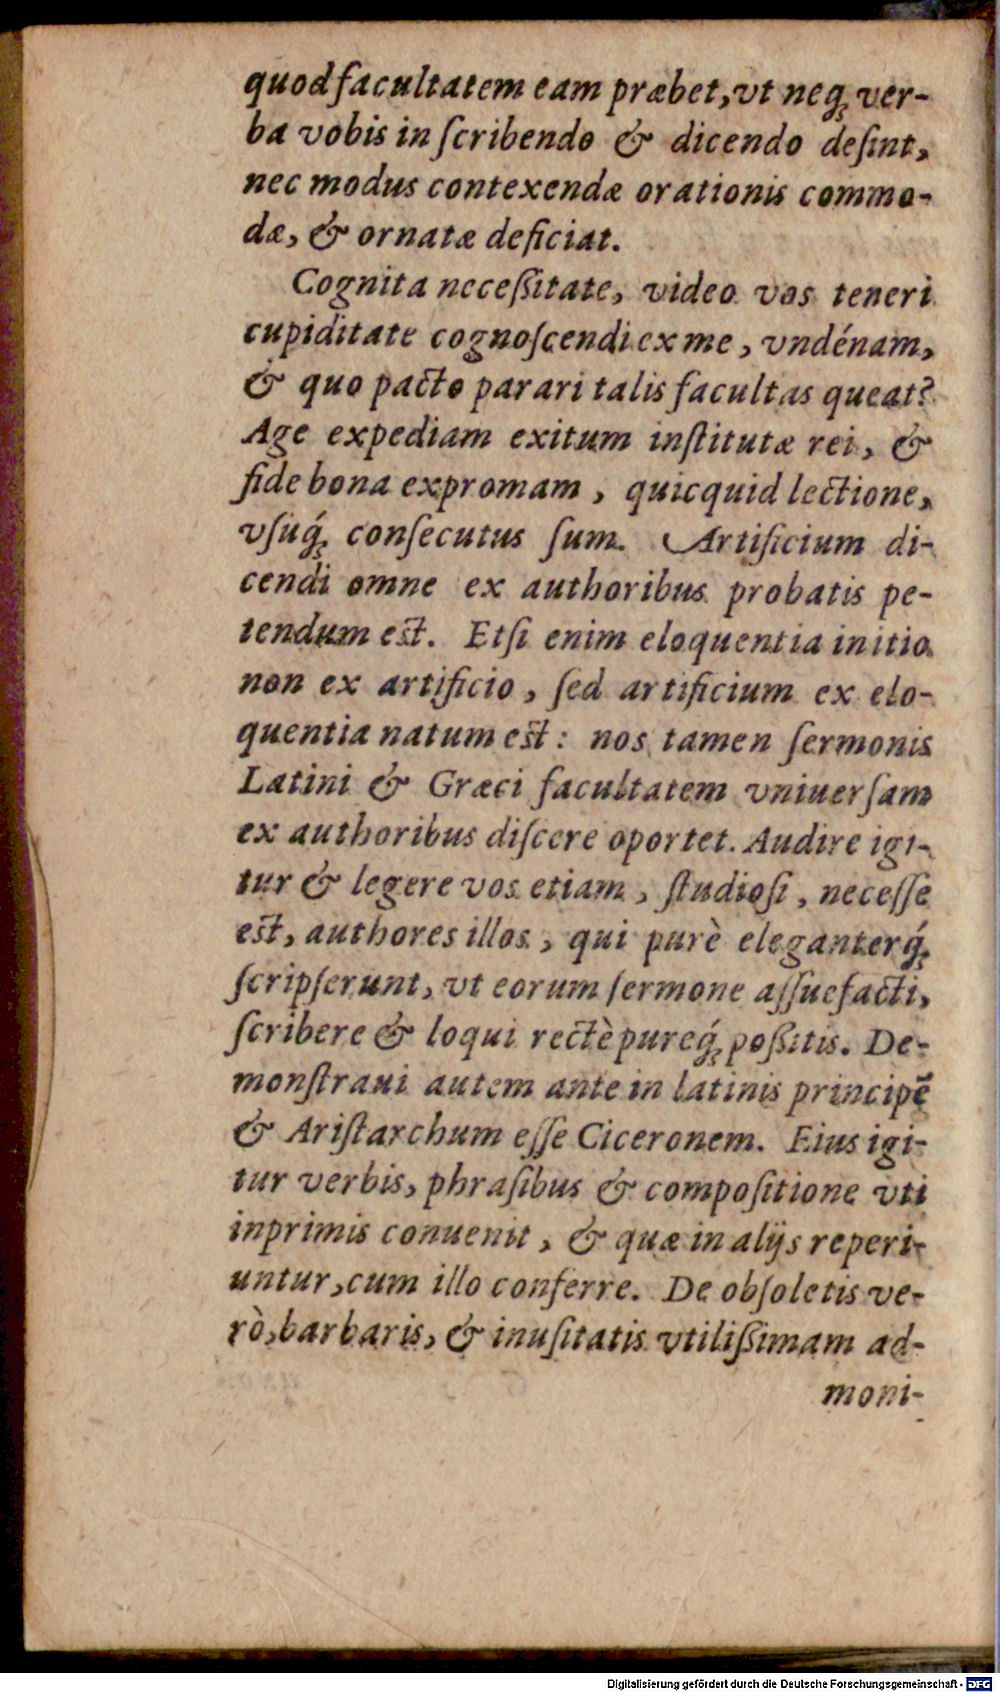 quod facultatem eam præbet, vt neq́; ver-
ba vobis in ſcribendo & dicendo deſint,
nec modus contexendæ orationis commo-
dæ, & ornatæ deficiat.
Cognita neceßitate, video vos teneri
cupiditate cognoſcendi ex me, vndénam,
& quo pacto parari talis facultas queat?
Age expediam exitum inſtitutæ rei, &
fide bona expromam, quicquid lectione,
vſúq́; conſecutus ſum. Artificium di-
cendi omne ex authoribus probatis pe-
tendum eſt. Etſi enim eloquentia initio
non ex artificio, ſed artificium ex elo-
quentia natum eſt: nos tamen ſermonis
Latini & Græci facultatem vniuerſam
ex authoribus diſcere oportet. Audire igi-
tur & legere vos etiam, ſtudioſi, neceſſe
eſt, authores illos, qui purè eleganterq́;
ſcripſerunt, vt eorum ſermone aſſuefacti,
ſcribere & loqui rectè pureq́; poßitis. De-
monſtraui autem ante in latinis principẽ
& Ariſtarchum eſſe Ciceronem. Eius igi-
tur verbis, phraſibus & compoſitione vti
inprimis conuenit, & quæ in alijs reperi-
untur, cum illo conferre. De obſoletis ve-
rò, barbaris, & inuſitatis vtilißimam ad-
moni-
Digitalisierung gefördert durch die Deutsche Forschungsgemeinschaft - DFG